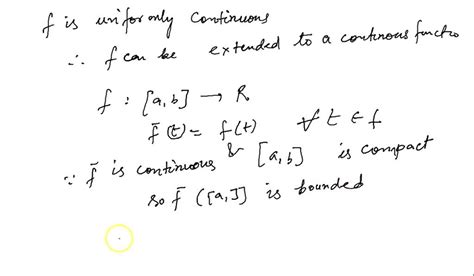 f is uniformly continuous
∴ f can be extended to a continous functio
f : [a, b] → R
f̄(t) = f(t) ∀ t ∈ f
∵ f̄ is continuous & [a, b] is compact
so f̄ ([a,]] is bounded